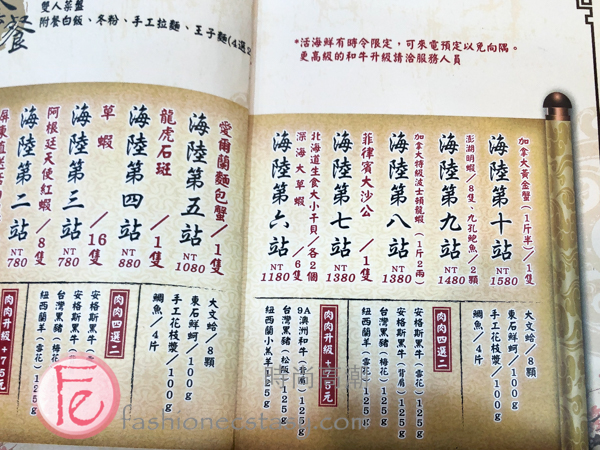 雙人菜盤
附餐白飯、冬粉、手工拉麵、王子麵(4選2)
餐
*活海鮮有時令限定，可來電預定以免向隅。
更高級的和牛升級請洽服務人員
加拿大黃金蟹(1斤半)/1隻
海陸第十站
NT 1580
澎湖明蝦/8隻、九孔鮑魚/2顆
海陸第九站
NT 1480
加拿大特級波士頓龍蝦(1斤2兩)
海陸第八站
NT 1380
菲律賓大沙公/1隻
海陸第七站
NT 1380
北海道生食大小干貝/各2個
深海大草蝦/6隻
海陸第六站
NT 1180
愛爾蘭麵包蟹/1隻
海陸第五站
NT 1080
龍虎石斑/1隻
海陸第四站
NT 880
草蝦/16隻
海陸第三站
NT 780
阿根廷天使紅蝦/8隻
海陸第二站
NT 780
屏東直送活
大文蛤/8顆
東石鮮蚵/100g
手工花枝漿/100g
鯛魚/4片
肉肉四選二
安格斯黑牛(雪花)125g
安格斯黑牛(背肩)125g
台灣黑豬(梅花)125g
紐西蘭羊(雪花)125g
肉肉升級+75元
9A澳洲和牛(背肩)125g
台灣黑豬(松阪)125g
紐西蘭小羔羊125g
大文蛤/8顆
東石鮮蚵/100g
手工花枝漿/100g
鯛魚/4片
肉肉四選二
安格斯黑牛(雪花)125g
安格斯黑牛(背肩)125g
台灣黑豬(梅花)125g
紐西蘭羊(雪花)125g
肉肉升級+75元
時尚高潮
fashionecstasy.com